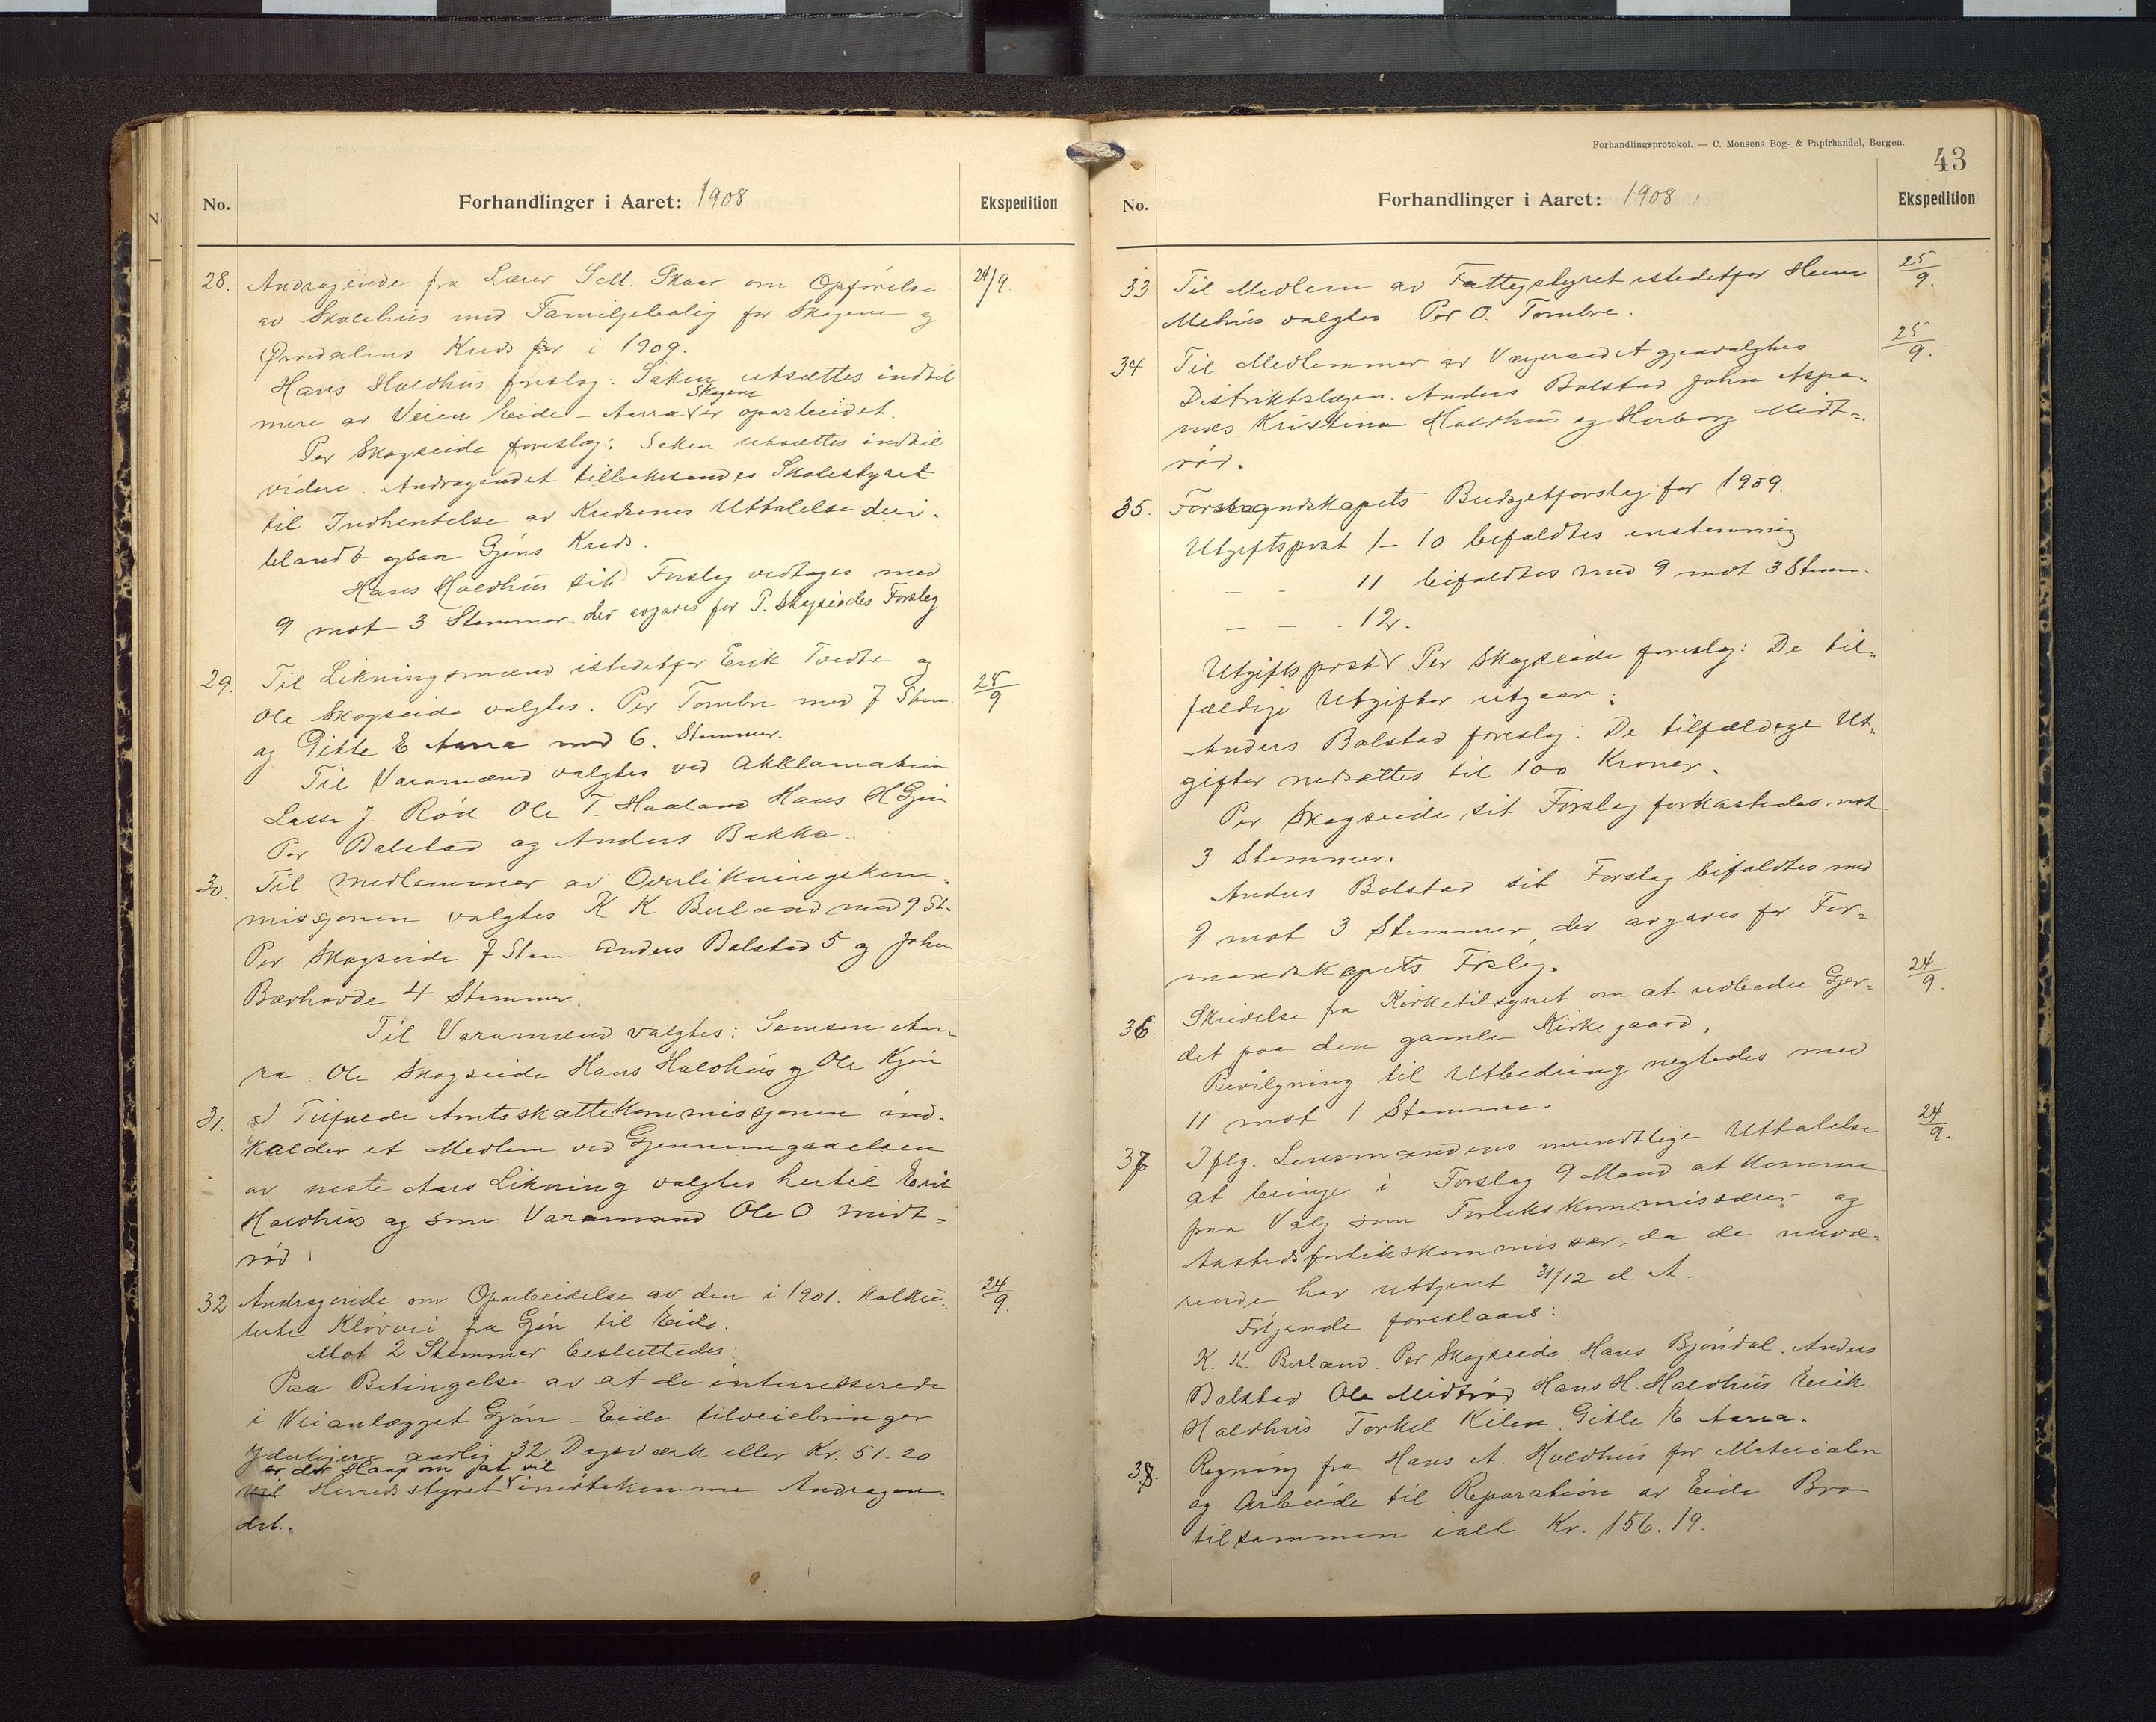 No.
Forhandlinger i Aaret: 1908
Ekspedition
28. Andragende fra Lærer S.M. Skaar om Opførelse 24/9.
av Skolehus med Familjebolig for Skogene og
Kreds for i 1909.
Hans Holdhus foreslog: Saken utsættes indtil
mere av Veien Eide - Aarra Skogene er oparbeidet.
Per Skogseide foreslog: Saken utsættes indtil
videre. Andragendet tilbakesendes Skolestyret
til Indhentelse av Kredsenes Uttalelse deri-
blandt ogsaa Gjøns Kreds.
Hans Holdhus sit Forslag vedtages med
9 mot 3 Stemmer. der avgaves for P. Skogseides Forslag
29. Til Likningsmænd istedetfor Erik Tvedte og
Ole Skogseide valgtes. Per Tombre med 7 Stem. 25/9
og Gitle E Aarra med 6. Stemmer.
Til Varamænd valgtes ved Akklamation
Lasse J. Rød Ole T. Haaland Hans H Gjøn
Per Bolstad og Anders Bakka.
30. Til medlemmer av Overlikningskom-
missjonen valgtes K K Berland med 9 St.
Per Skogseide 7 Stem. Anders Bolstad 5 og John
Bævhovde 4 Stemmer.
Til Varamænd valgtes: Samson Aar-
ra. Ole Skogseide Hans Holdhus og Ole Kjøn
31. I Tilfælde Amtsskattekommissjonen ind-
kalder et Medlem ved Gjennemgaaelsen
av neste Aars Likning valgtes hertil Erik
Holdhus og som Varamand Ole O. Midt-
rød
32 Andragende om Oparbeidelse av den i 1901. kalku- 24/9.
lerte Kløvvei fra Gjøn til Eide.
Mot 2 Stemmer besluttedes:
Paa Betingelse av at de interesserede
i Veianlægget Gjøn - Eide tilveiebringer
yderligere aarlig 32 Dagsværk eller Kr. 51.20
er der Haap om at vil
vil Herredsstyret imøtekomme Andragen-
det.
Forhandlingsprotokol. — C. Monsens Bog- & Papirhandel, Bergen.
43
No.
Forhandlinger i Aaret: 1908
Ekspedition
33 Til Medlem av Fattigstyret istedetfor Heine 25/9.
Mehus valgtes Per O. Tombre.
34 Til Medlemmer av Vergeraadet gjenvalgtes 25/9.
Distriktslægen. Anders Bolstad John Aspe-
næs Kristina Holdhus og Herborg Midt-
rød.
35. Formandskapets Budgetforslag for 1909.
Utgiftspost 1 - 10 bifaldtes enstemmig
— — 11 bifaldtes med 9 mot 3 Stem.
— — . 12.
Utgiftspost. Per Skogseide foreslog: De til-
fældige Utgifter utgaar.
Anders Bolstad foreslog: De tilfældige Ut-
gifter nedsættes til 100 Kroner.
Per Skogseide sit Forslag forkastedes mot
3 Stemmer.
Anders Bolstad sit Forslag bifaldtes med
9 mot 3 Stemmer, der avgaves for For-
mandskapets Forslag.
36 Skrivelse fra Kirketilsynet om at utbedre Gjer- 24/9.
det paa den gamle Kirkegaard.
Bevilgning til Utbedring negtedes med
11 mot 1 Stemme.
37 Iflg. Lensmandens mundtlige Uttalelse 24/9.
at bringe i Forslag 9 Mand at komme
paa Valg som Forlikskommissærer og
Aastedsforlikskommissær, da de nuvæ-
rende har uttjent 31/12 d A.
Følgende foreslaaes:
K. K. Berland. Per Skogseide Hans Bjøndal. Anders
Bolstad Ole Midtrød Hans H. Holdhus Erik
Holdhus Torkel Kilen Gitle E Aarra.
38. Regning fra Hans A. Holdhus for Materialer
og Arbeide til Reparation av Eide Bro
tilsammen ialt Kr. 156.19.